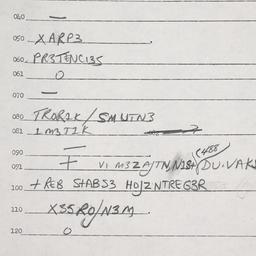 040 —
050 XARP3
060 PR3TENCI3S
061 0
070 —
080 TROR1K / SMUTN3
081 1M3T1K
090 —
091 VI M3ZAJTN
100 + REB STABS3 HO/ZNTREG3R
110 XSSRO/N3M
120 0